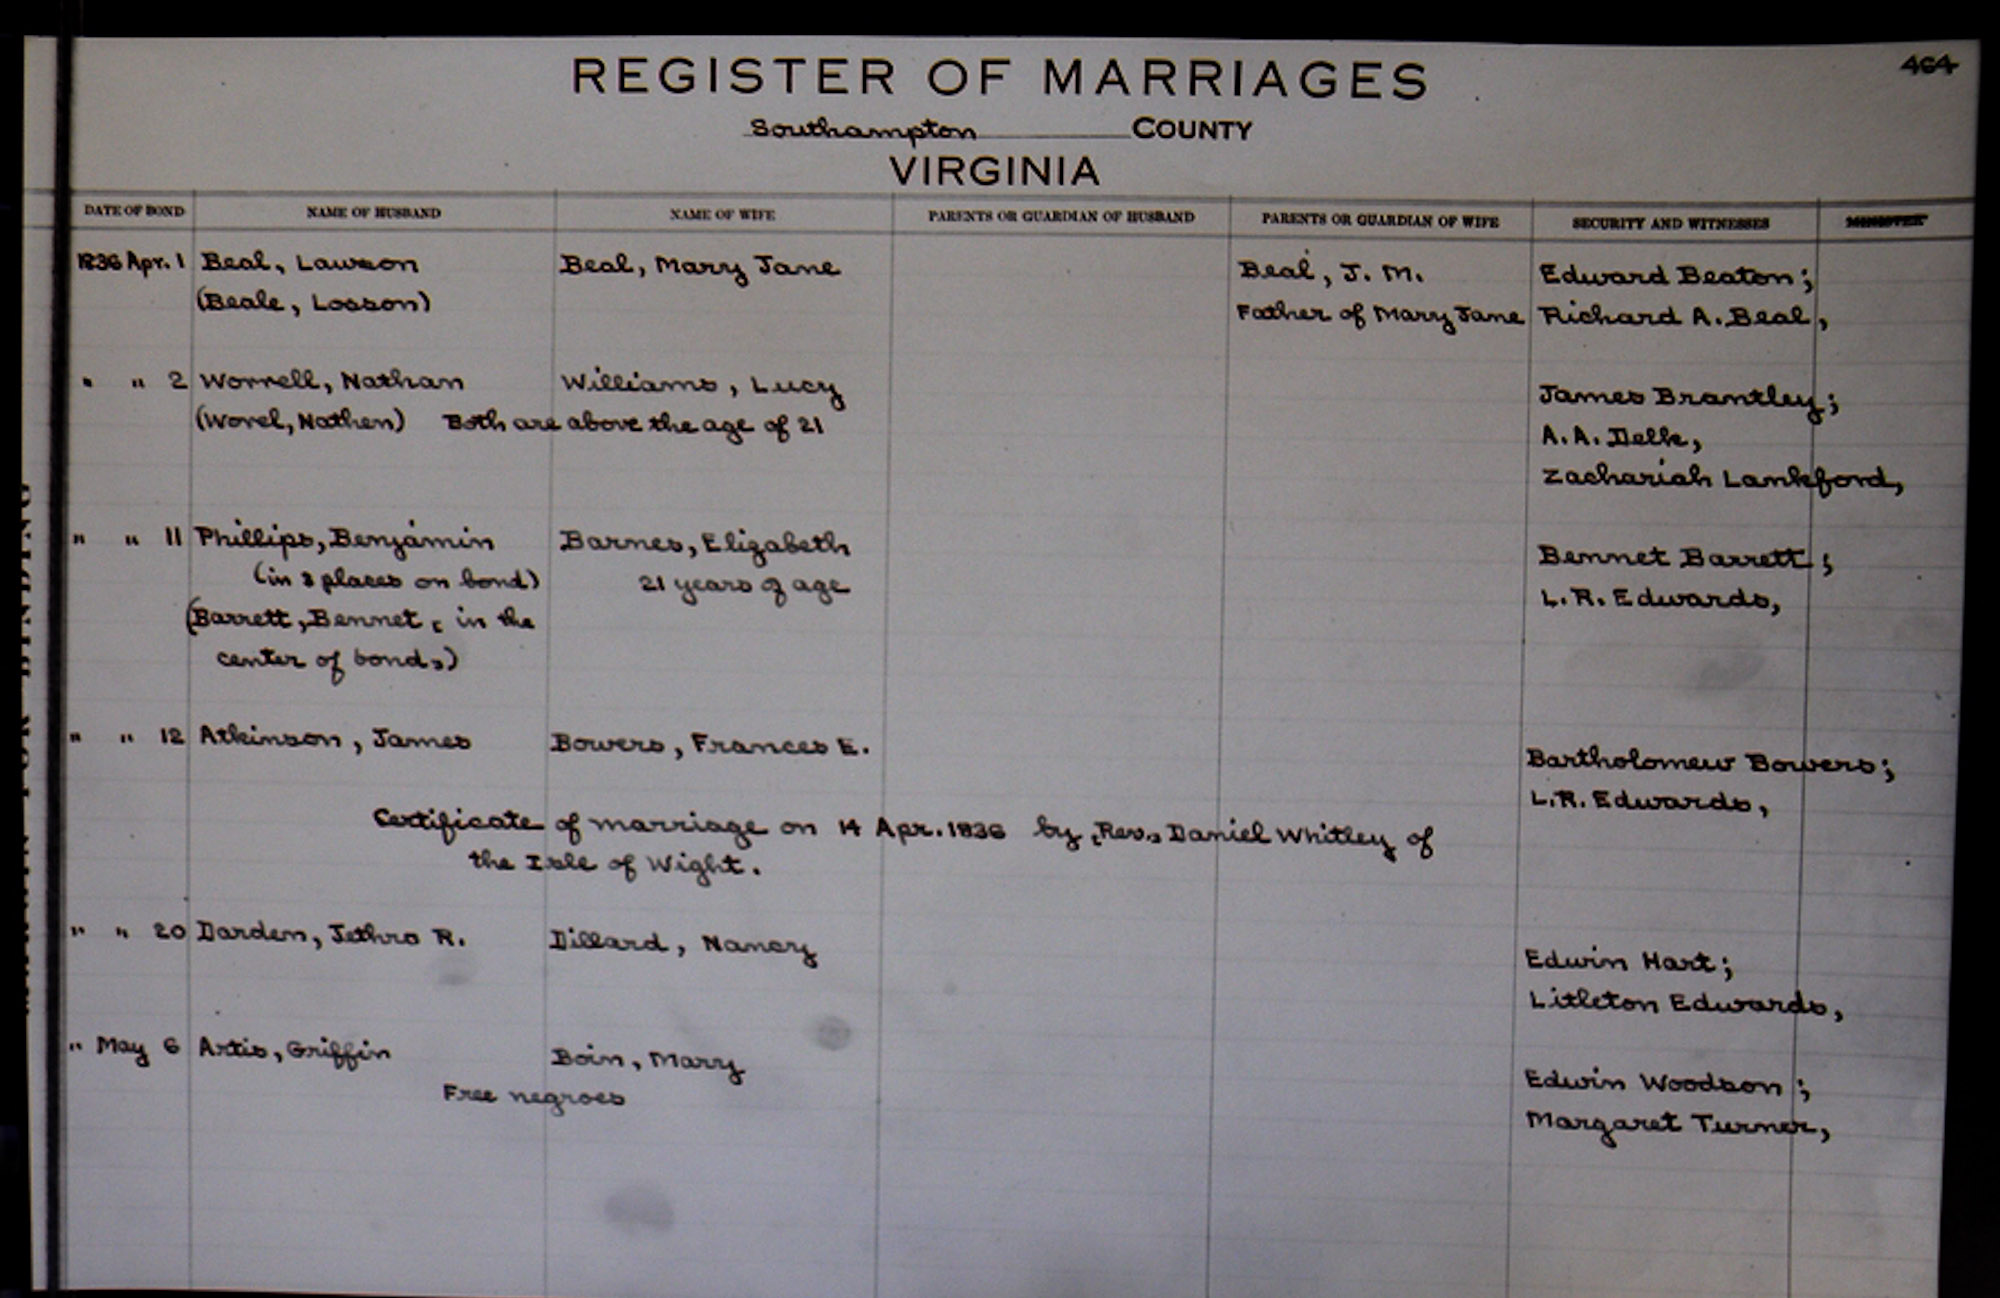 464
REGISTER OF MARRIAGES
Southampton COUNTY
VIRGINIA
DATE OF BOND NAME OF HUSBAND NAME OF WIFE PARENTS OR GUARDIAN OF HUSBAND PARENTS OR GUARDIAN OF WIFE SECURITY AND WITNESSES MINISTER
1836 Apr. 1 Beal, Lawson Beal, Mary Jane Beal, J. M. Edward Beaton;
(Beale, Losson) Father of Mary Jane Richard A. Beal,
" " 2 Worrell, Nathan Williams, Lucy James Brantley;
(Worel, Nathen) Both are above the age of 21 A. A. Delk,
Zachariah Lankford,
" " 11 Phillips, Benjamin Barnes, Elizabeth Bennet Barrett;
(in 3 places on bond) 21 years of age L. R. Edwards,
(Barrett, Bennet, in the
center of bond,)
" " 12 Atkinson, James Bowers, Frances E. Bartholomew Bowers;
L. R. Edwards,
Certificate of marriage on 14 Apr. 1836 by [Rev.] Daniel Whitley of
the Isle of Wight.
" " 20 Darden, Jethro R. Dillard, Nancy Edwin Hart;
Litleton Edwards,
" May 6 Artis, Griffin Boin, Mary Edwin Woodson;
Free negroes Margaret Turner,